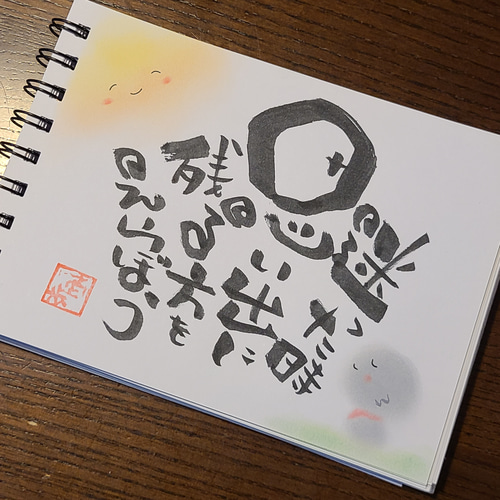 迷った時
思い出に
残る方を
えらぼう